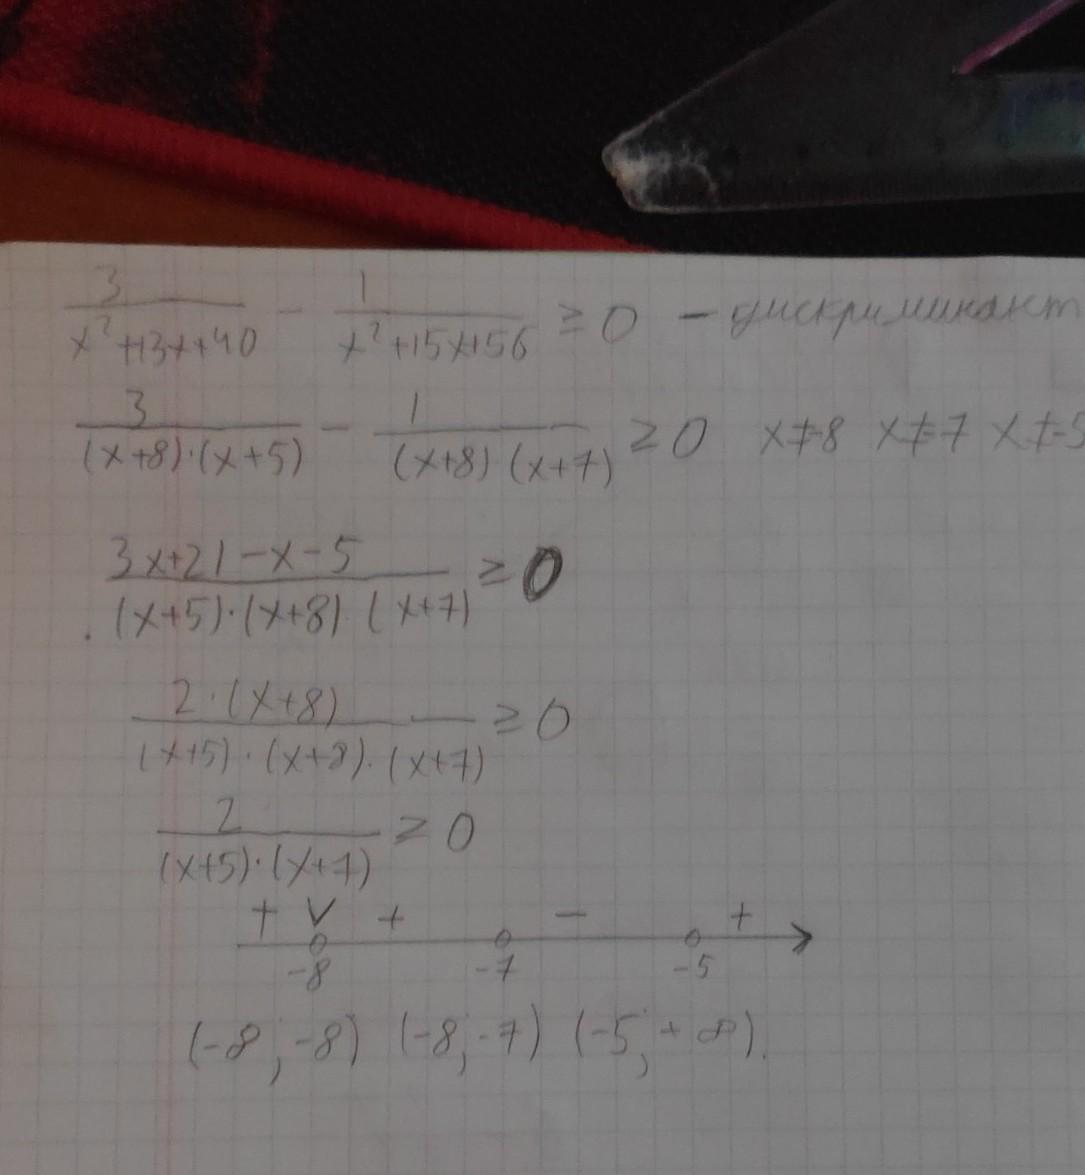 3/(x²+13x+40) - 1/(x²+15x+56) ≥ 0 - дискриминант
3/((x+8)·(x+5)) - 1/((x+8)(x+7)) ≥ 0 x≠-8 x≠-7 x≠-5
(3x+21-x-5)/((x+5)·(x+8)(x+7)) ≥ 0
2·(x+8)/((x+5)·(x+8)·(x+7)) ≥ 0
2/((x+5)·(x+7)) ≥ 0
+ V + - +
-8 -7 -5
(-∞; -8) (-8; -7) (-5; +∞).